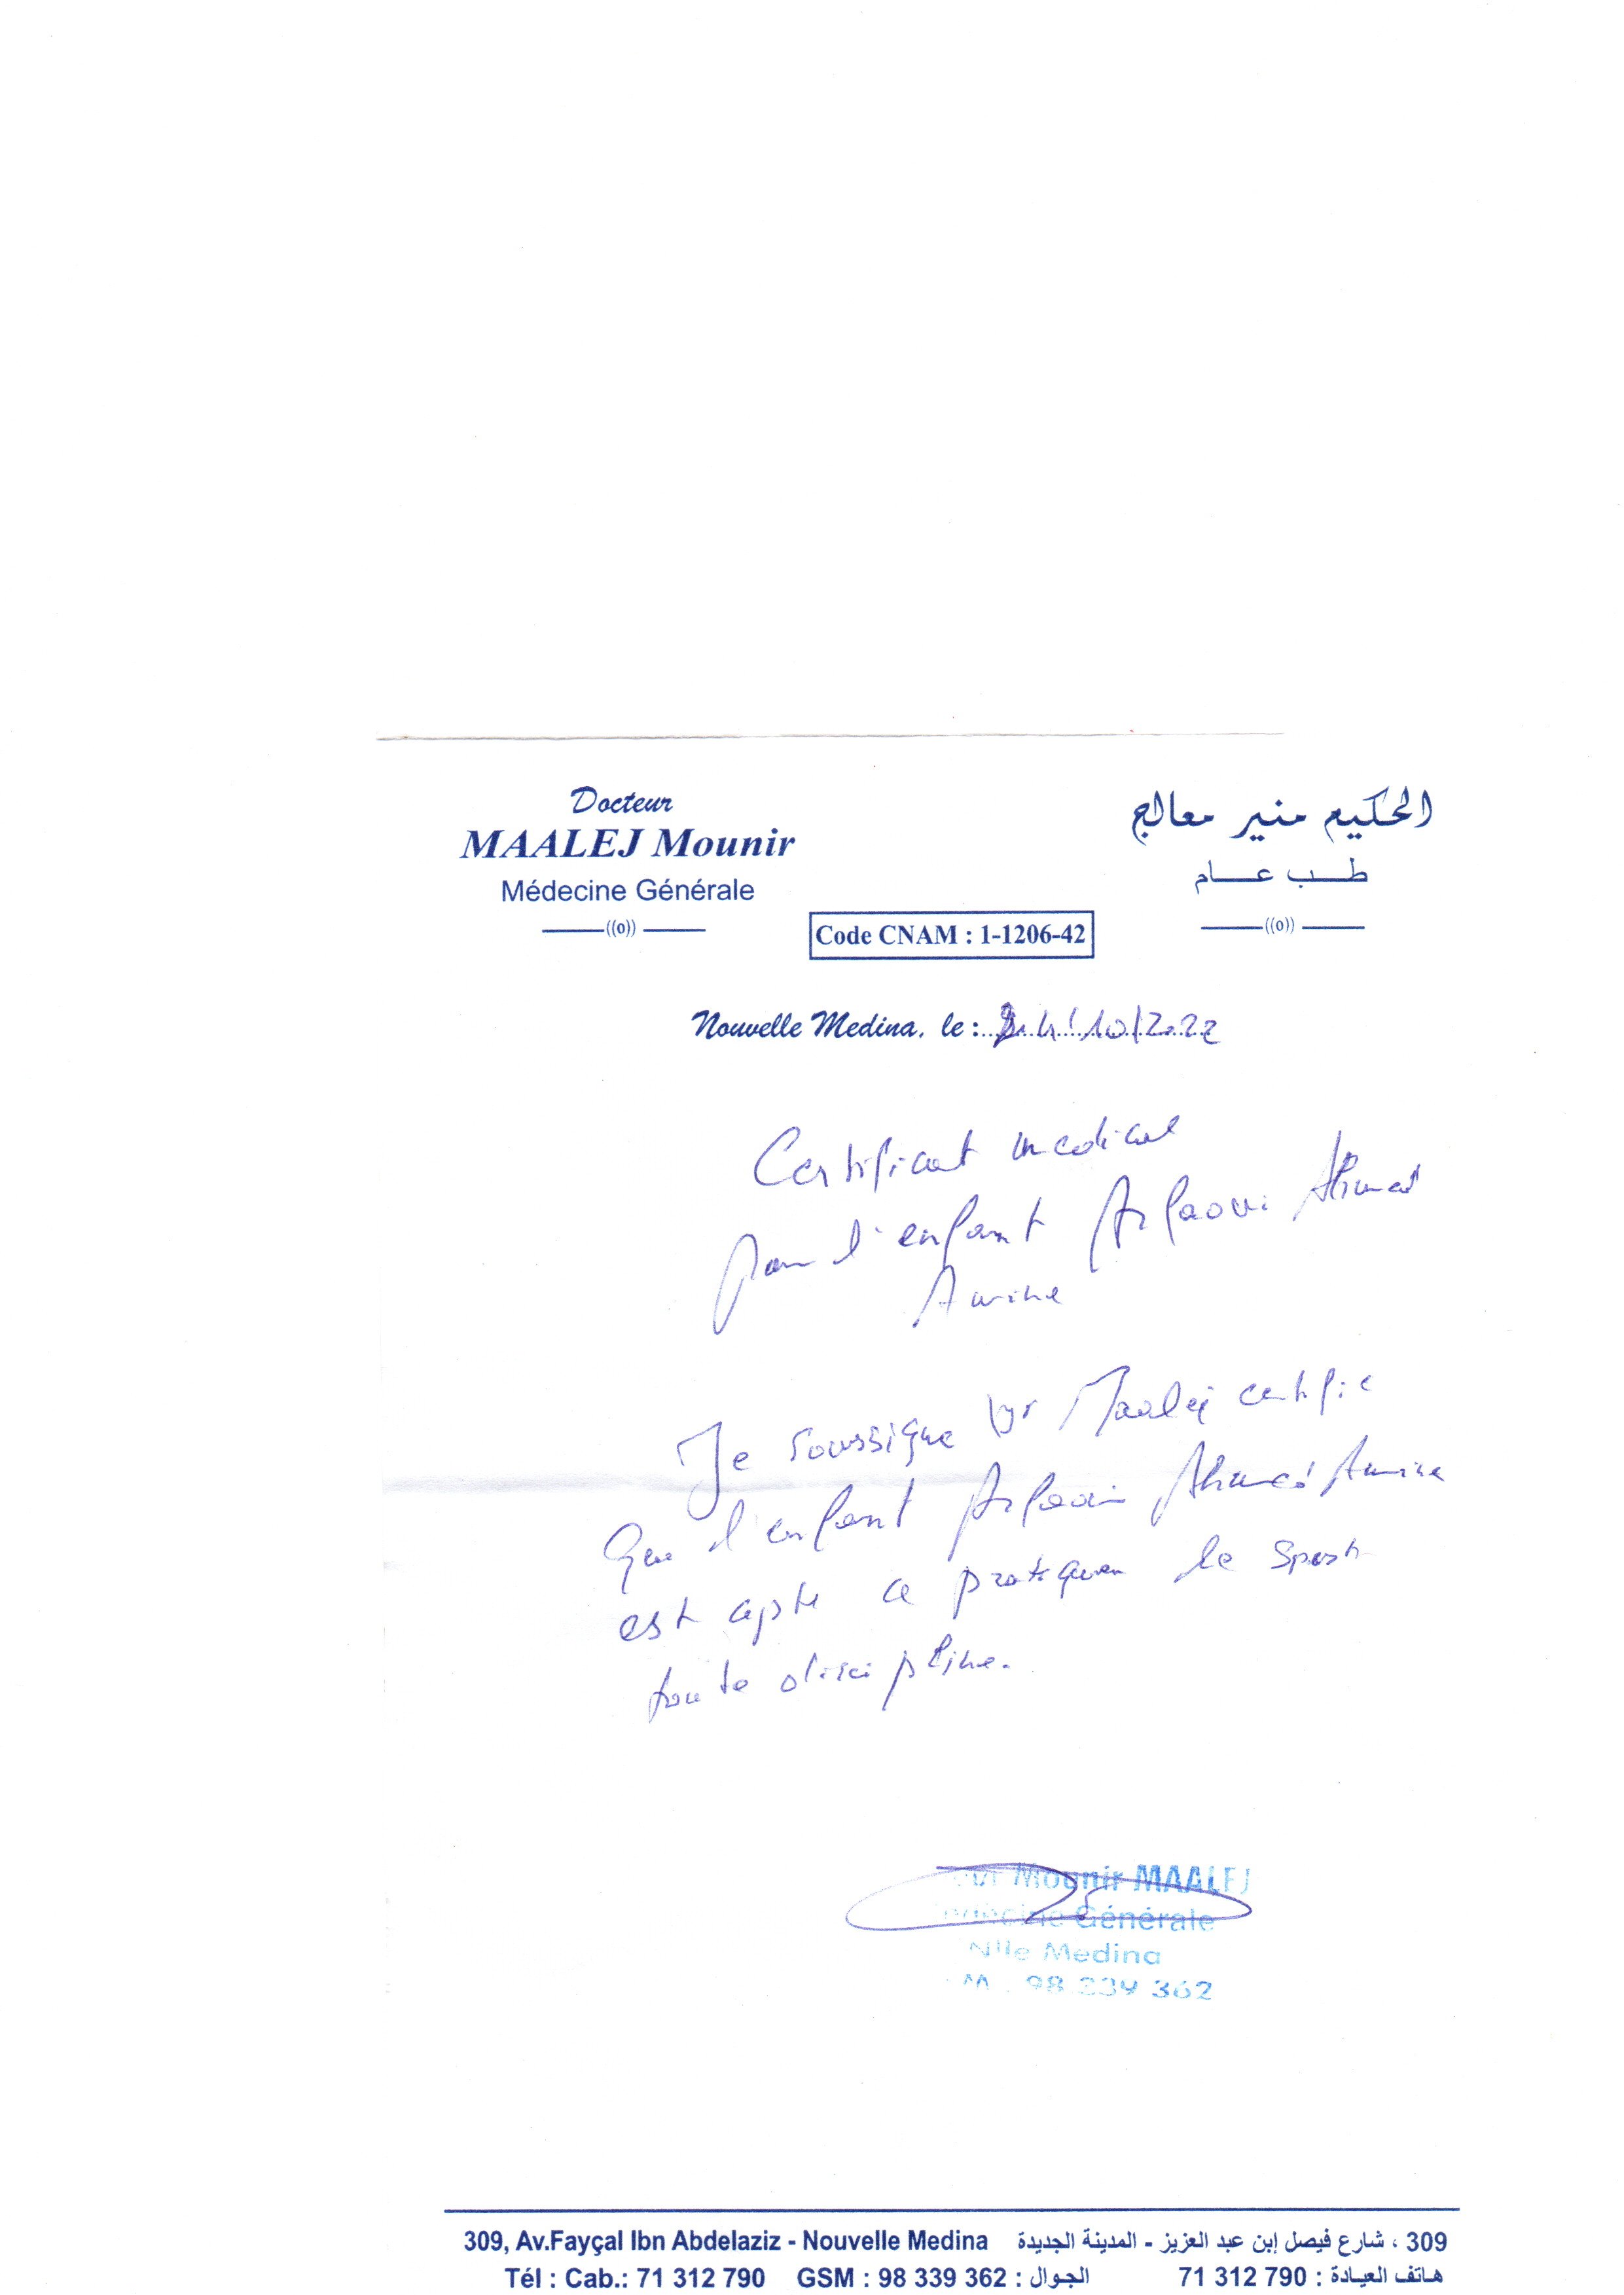 Docteur
MAALEJ Mounir
Médecine Générale
((o))
الحكيم منير معالج
طب عام
((o))
Code CNAM : 1-1206-42
Nouvelle Medina, le : 24/10/2022
Certificat medical
pour l'enfant Arfaoui Ahmed
Amine
Je soussigne Dr Maalej certifie
que l'enfant Arfaoui Ahmed Amine
est apte a pratiquer le sport
toute discipline.
Mounir MAALEJ
Médecine Générale
Nlle Medina
M : 98 339 362
309, Av.Fayçal Ibn Abdelaziz - Nouvelle Medina 309 ، شارع فيصل إبن عبد العزيز - المدينة الجديدة
Tél : Cab.: 71 312 790 GSM : 98 339 362 : الجوال هاتف العيادة : 71 312 790